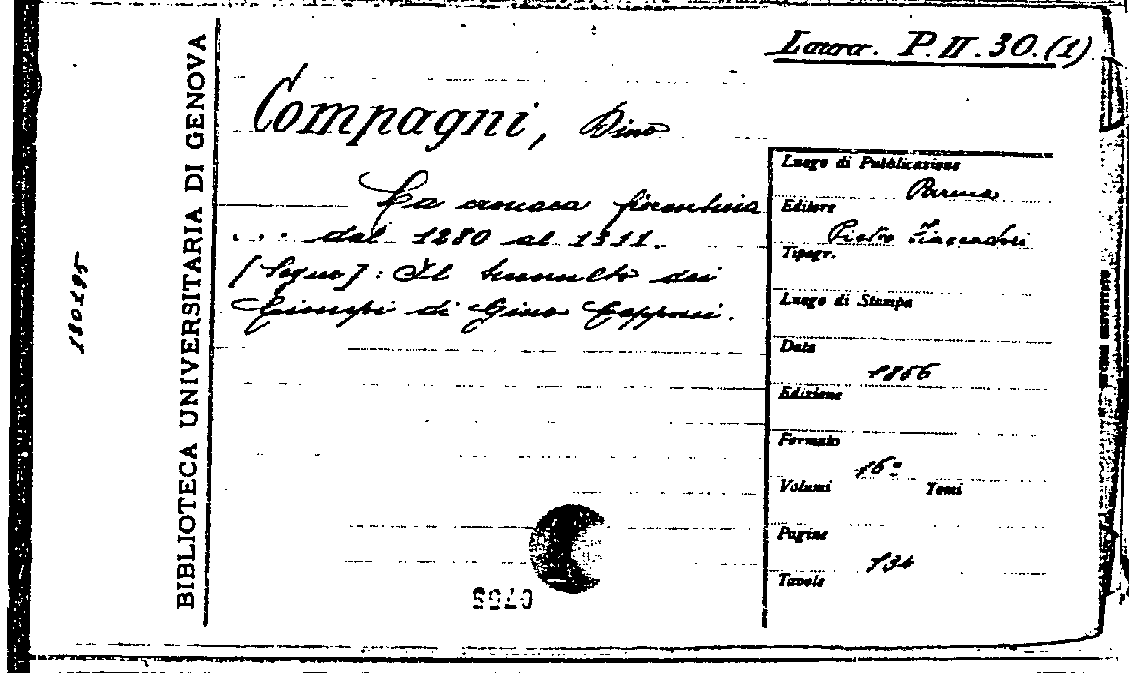 Laura. P.II.30.(1)
Compagni, Dino
La cronaca fiorentina
... dal 1280 al 1311.
[Segue]: Il tumulto dei
Ciompi di Gino Capponi.
Luogo di Pubblicazione
Parma
Editore
Pietro Fiaccadori
Tipogr.
Luogo di Stampa
Data
1856
Edizione
Formato
16º
Volumi Tomi
Pagine
134
Tavole
BIBLIOTECA UNIVERSITARIA DI GENOVA
180195